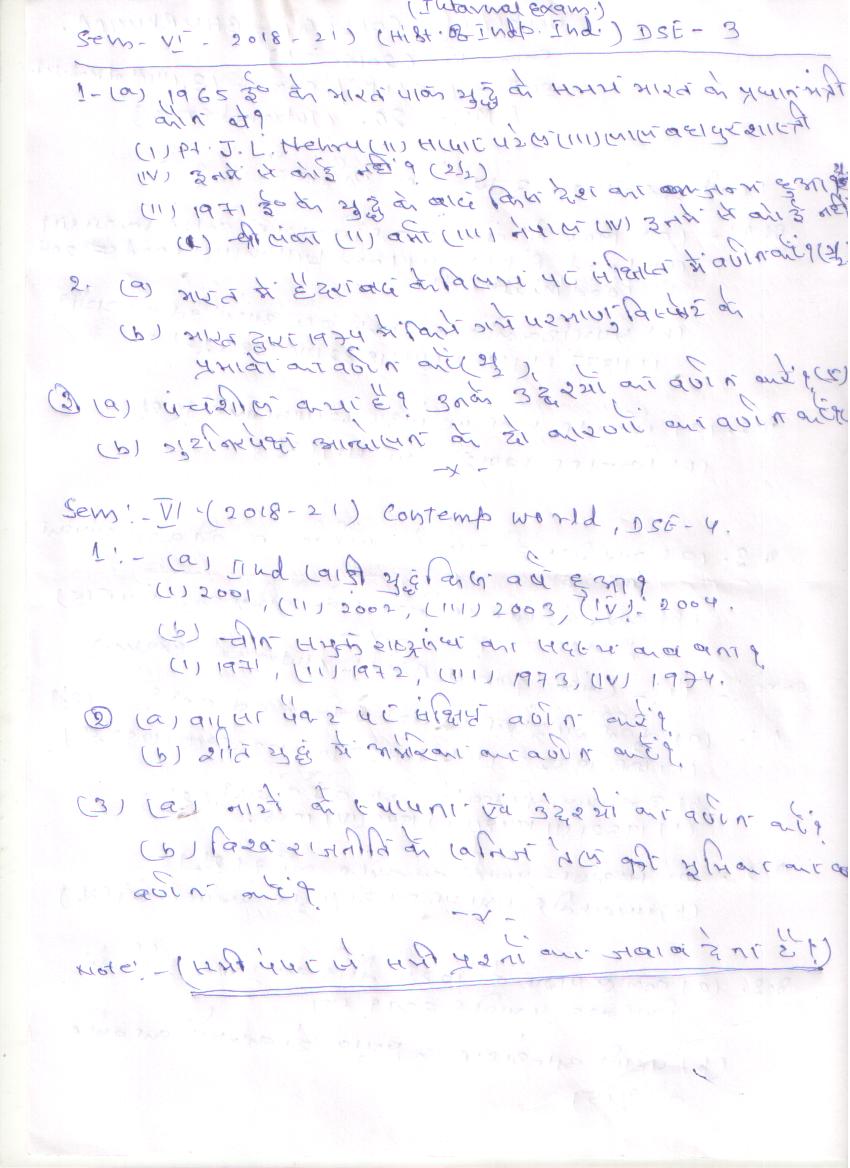 (Internal exam.)
Sem - VI - 2018-21) (Hist. of Indp. Ind.) DSE - 3
1- (a) 1965 ई० के भारत पाक युद्ध के समय भारत के प्रधानमंत्री
कौन थे?
(i) Pt. J.L. Nehru (ii) सरदार पटेल (iii) लाल बहादुर शास्त्री
(iv) इनमें से कोई नहीं? (2½)
(ii) 1971 ई० के युद्ध के बाद किस देश का जन्म हुआ?
(i) श्रीलंका (ii) वर्मा (iii) नेपाल (iv) इनमें से कोई नहीं
2. (a) भारत में हैदराबाद के विलय पर संक्षिप्त में वर्णन करें?
(b) भारत द्वारा 1974 में किये गये परमाणु विस्फोट के
प्रभावों का वर्णन करें
(3) (a) पंचशील क्या है? उनके उद्देश्यों का वर्णन करें? (5)
(b) गुटनिरपेक्ष आन्दोलन के दो कारणों का वर्णन करें?
-x-
Sem:- VI (2018-21) Contemp world, DSE-4.
1:- (a) IInd खाड़ी युद्ध किस वर्ष हुआ?
(i) 2001, (ii) 2002, (iii) 2003, (iv):- 2004.
(b) चीन संयुक्त राष्ट्रसंघ का सदस्य कब बना?
(i) 1971, (ii) 1972, (iii) 1973, (iv) 1974.
(2) (a) वारसा पैक्ट पर संक्षिप्त वर्णन करें?
(b) शीत युद्ध में अमेरिका का वर्णन करें?
(3) (a) नाटो के स्थापना एवं उद्देश्यों का वर्णन करें?
(b) विश्व राजनीति के खनिज तेल की भूमिका का
वर्णन करें?
-x-
Note:- (सभी पेपर से सभी प्रश्नों का जवाब देना है।)